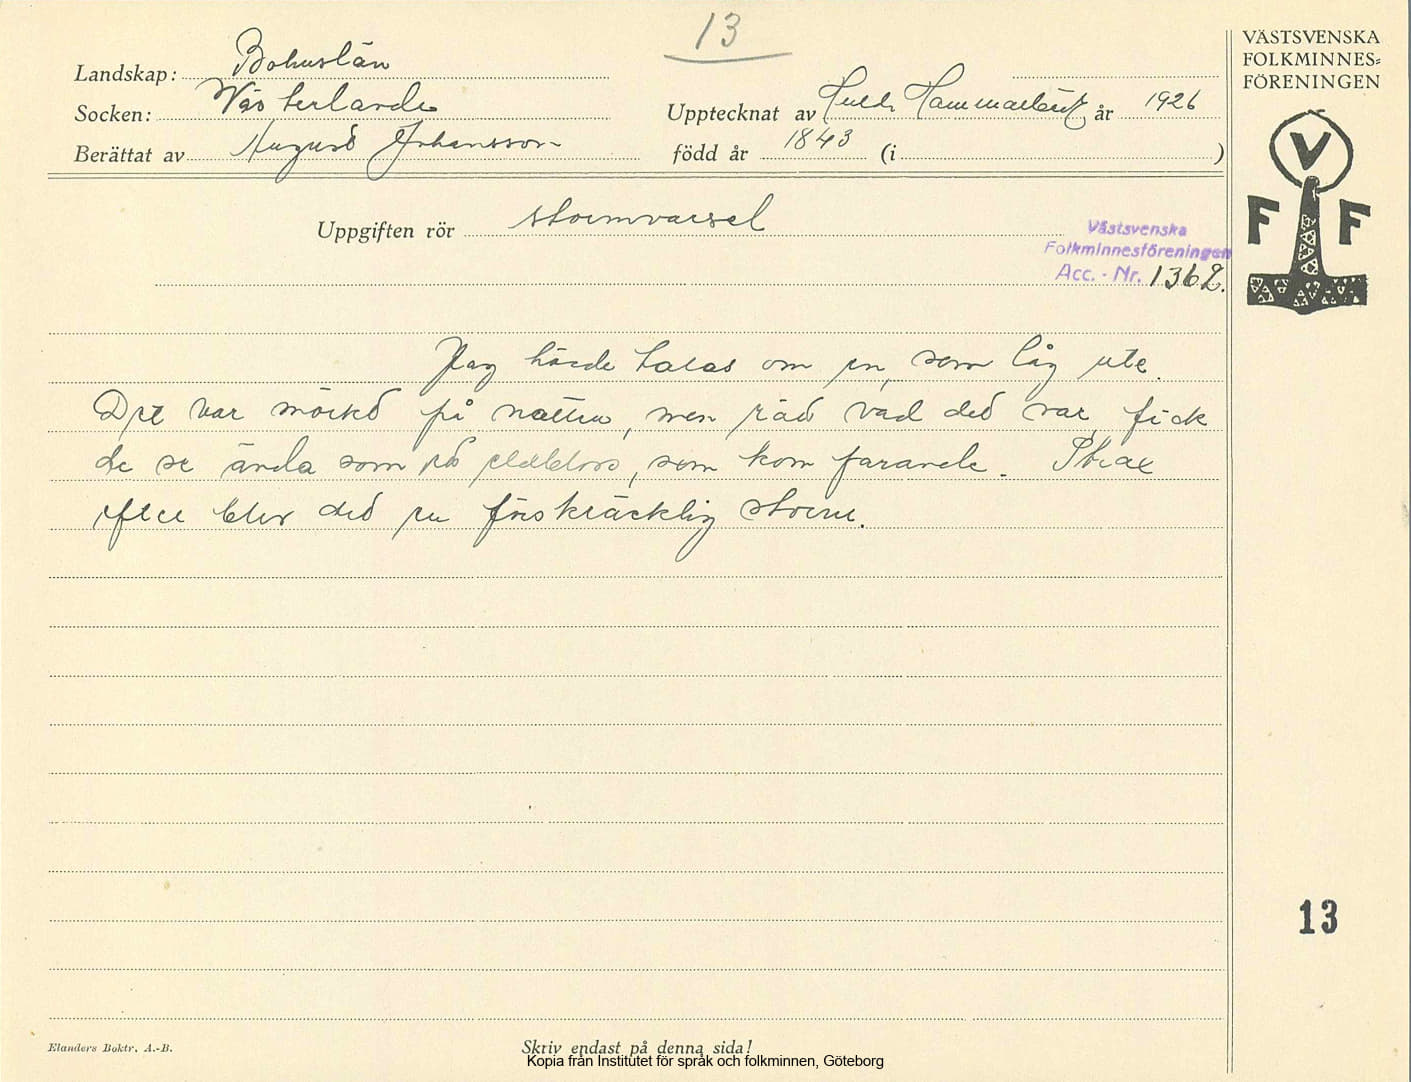 13
VÄSTSVENSKA
FOLKMINNES-
FÖRENINGEN
Landskap: Bohuslän
Socken: Västerlanda Upptecknat av Hulda Hammarbäck år 1926
Berättat av August Johansson född år 1843 (i )
Uppgiften rör stormvarsel
Västsvenska
Folkminnesföreningen
Acc. - Nr. 1362.
V
F F
Jag hörde talas om en, som låg ute.
Det var mörkt på natten, men rätt vad det var, fick
de se ända som ett eldkloss, som kom farande. Strax
efter blev det en förskräcklig storm.
13
Elanders Boktr. A.-B.
Skriv endast på denna sida!
Kopia från Institutet för språk och folkminnen, Göteborg